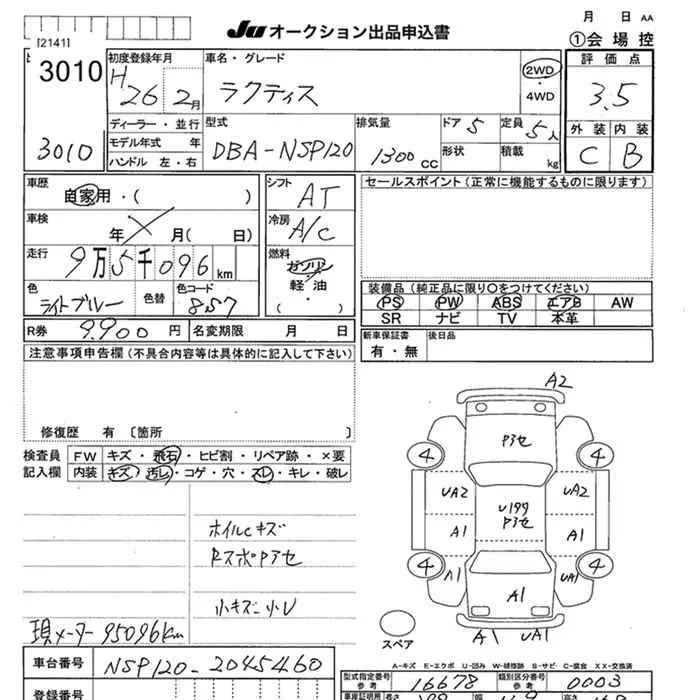 Ju オークション出品申込書
月 日 AA
[2141]
①会場控
3010
初度登録年月
H 26 2月
車名・グレード
ラクティス
2WD
・
4WD
評価点
3.5
外装 内装
C B
3010
ディーラー・並行
モデル年式 年
ハンドル 左・右
型式
DBA-NSP120
排気量
1300 CC
ドア 5
形状
定員 5人
積載 kg
車歴
自家用・( )
車検
年 月( 日)
走行
9万5千096km
色
ライトブルー
色替
色コード
8S7
R券 9.900 円
名変期限 月 日
シフト AT
冷房 A/C
燃料
ガソリン
軽油
・
( )
セールスポイント(正常に機能するものに限ります)
装備品(純正品に限り○をつけてください)
PS PW ABS エアB AW
SR ナビ TV 本革
新車保証書
有・無
後日品
注意事項申告欄(不具合内容等は具体的に記入して下さい)
修復歴 有 〔箇所 〕
検査員
記入欄
FW キズ・飛石・ヒビ割・リペア跡・×要
内装 キズ・汚レ・コゲ・穴・スレ・キレ・破レ
ホイルcキズ
RスポPワセ
小キズ-小U
現メーター95096km
A2
Pワセ
4 4
UA2 UA2
U199
Pワセ
A1 A1
4 4
A1 UA1
A1
A1 UA1
スペア
A-キズ E-エクボ U-凹み W-補修跡 S-サビ C-腐食 XX-交換済
車台番号 NSP120-2045460
登録番号
型式指定番号
参考
16678
類別区分番号
参考
0003